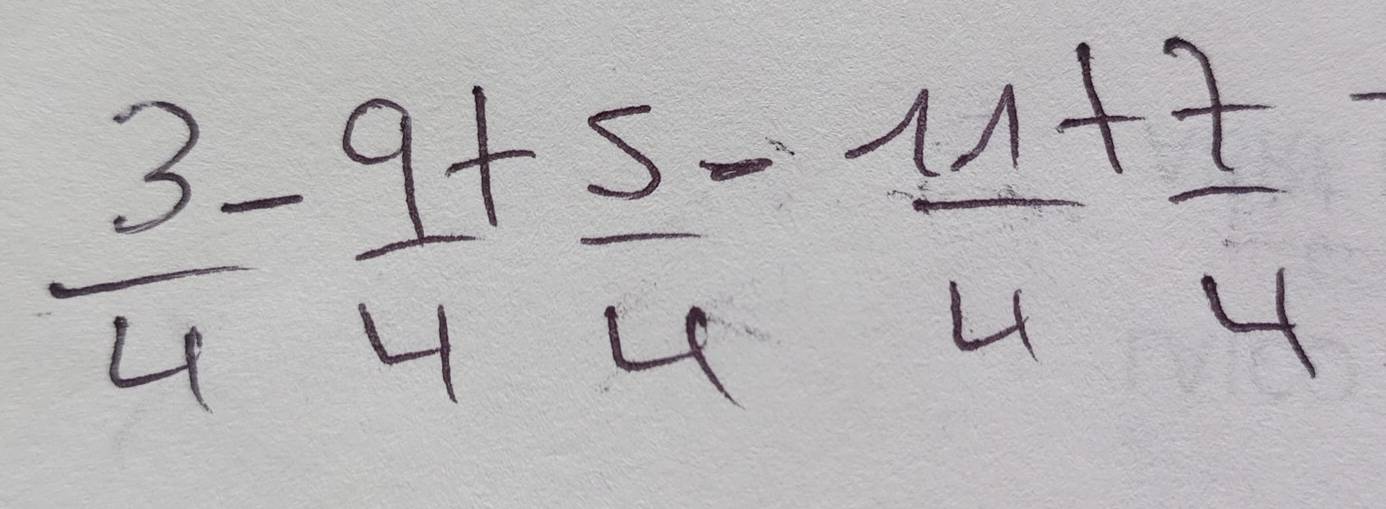 3/4 - 9/4 + 5/4 - 11/4 + 7/4 -